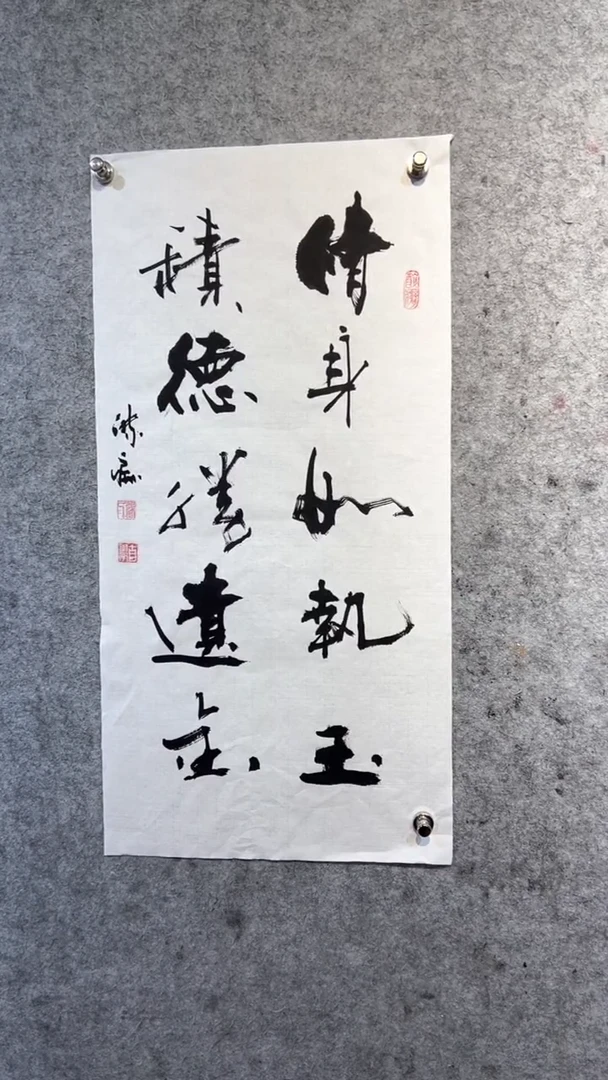 脩身如執玉
積德勝遺金